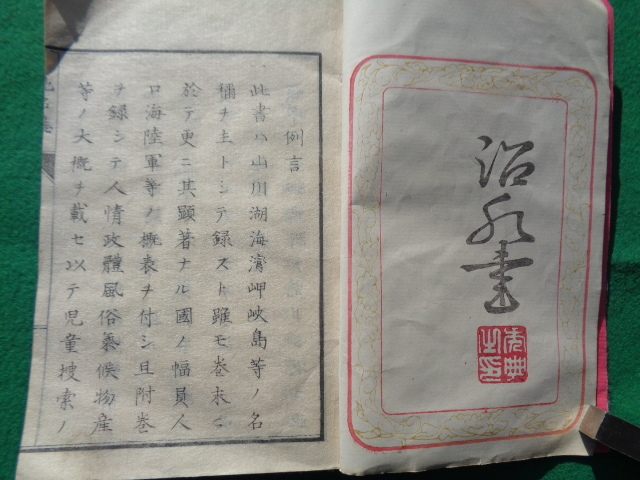 例言
此書ハ山川湖海灣岬峽島等ノ名
稱ヲ主トシテ録スト雖モ巻末ニ
於テ更ニ其顯著ナル國ノ幅員人
口海陸軍等ノ概表ヲ付シ且附巻
ヲ録シテ人情政體風俗氣候物産
等ノ大概ヲ載セ以テ児童搜索ノ